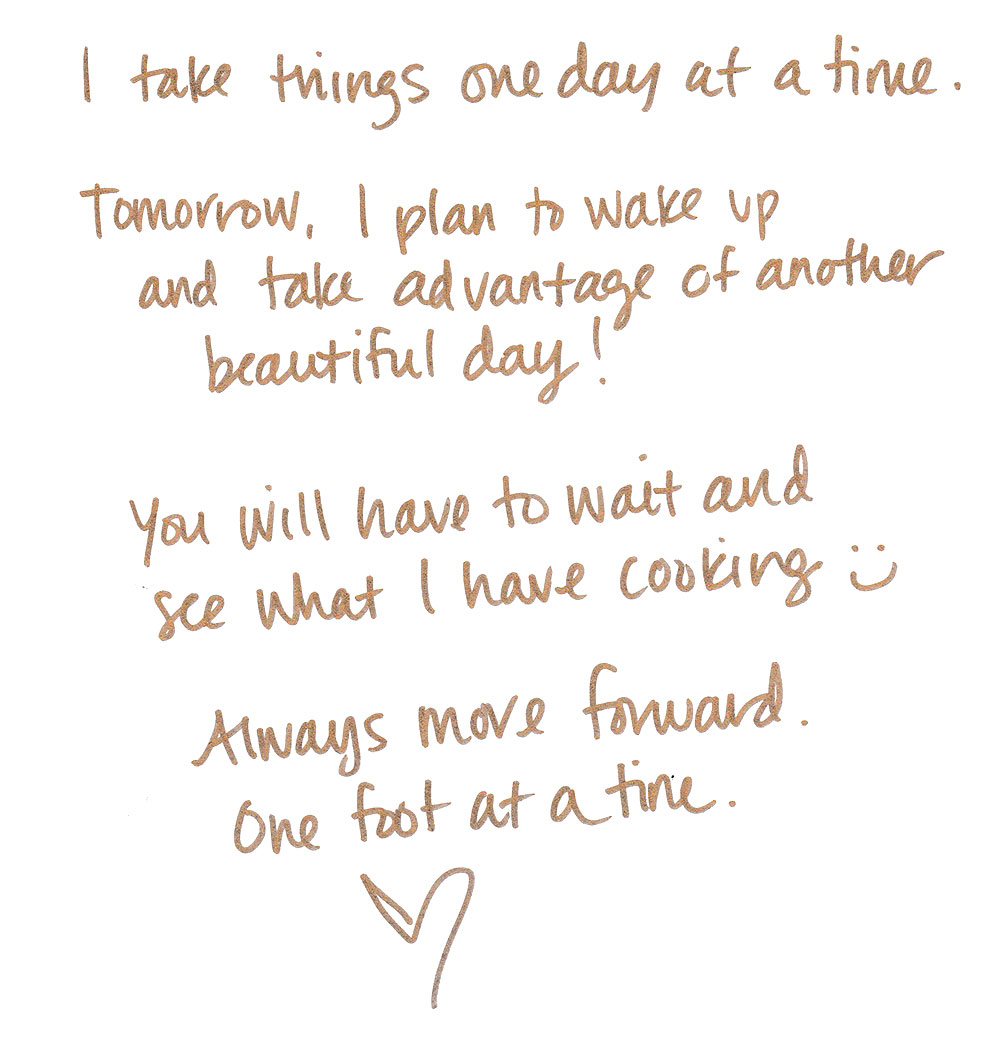 I take things one day at a time.
Tomorrow, I plan to wake up
and take advantage of another
beautiful day!
You will have to wait and
see what I have cooking :)
Always move forward.
One foot at a time.